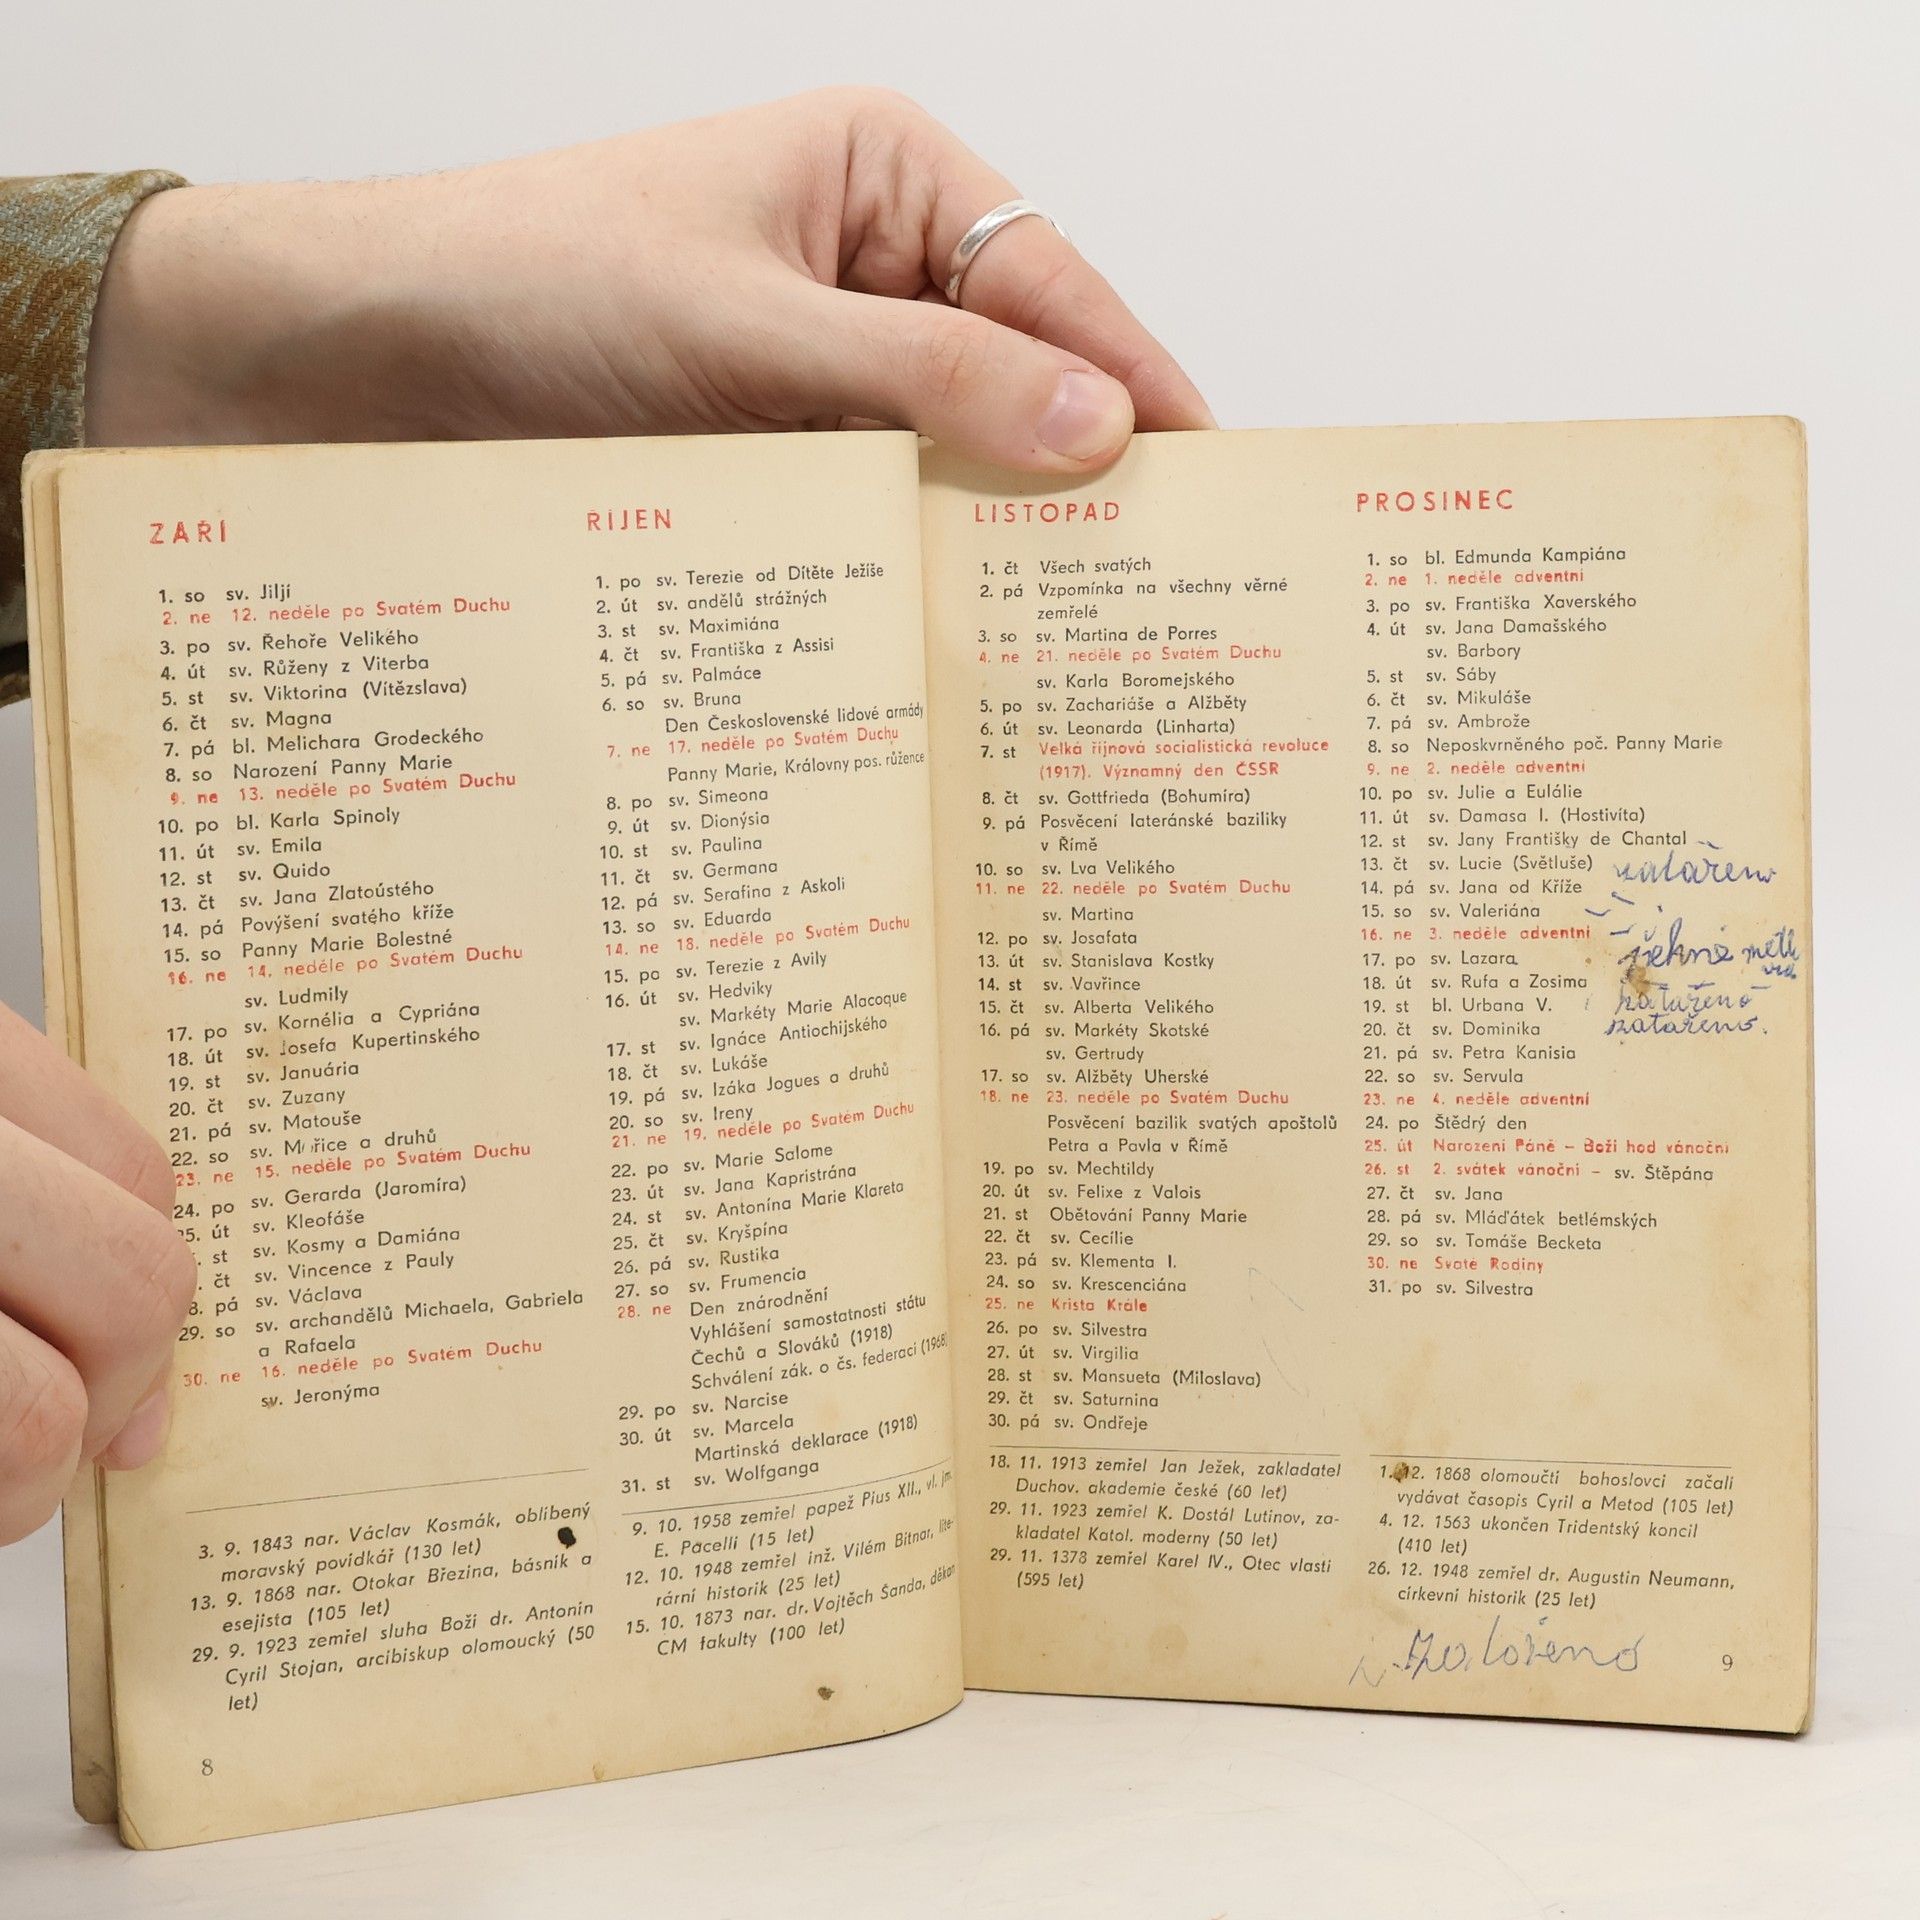 ZÁŘÍ
1. so sv. Jiljí
2. ne 12. neděle po Svatém Duchu
3. po sv. Řehoře Velikého
4. út sv. Růženy z Viterba
5. st sv. Viktorina (Vítězslava)
6. čt sv. Magna
7. pá bl. Melichara Grodeckého
8. so Narození Panny Marie
9. ne 13. neděle po Svatém Duchu
10. po bl. Karla Spinoly
11. út sv. Emila
12. st sv. Quido
13. čt sv. Jana Zlatoústého
14. pá Povýšení svatého kříže
15. so Panny Marie Bolestné
16. ne 14. neděle po Svatém Duchu
sv. Ludmily
17. po sv. Kornélia a Cypriána
18. út sv. Josefa Kupertinského
19. st sv. Januária
20. čt sv. Zuzany
21. pá sv. Matouše
22. so sv. Mořice a druhů
23. ne 15. neděle po Svatém Duchu
24. po sv. Gerarda (Jaromíra)
25. út sv. Kleofáše
st sv. Kosmy a Damiána
čt sv. Vincence z Pauly
8. pá sv. Václava
29. so sv. archandělů Michaela, Gabriela
a Rafaela
30. ne 16. neděle po Svatém Duchu
sv. Jeronýma
3. 9. 1843 nar. Václav Kosmák, oblíbený
moravský povídkář (130 let)
13. 9. 1868 nar. Otokar Březina, básník a
esejista (105 let)
29. 9. 1923 zemřel sluha Boží dr. Antonín
Cyril Stojan, arcibiskup olomoucký (50
let)
8
ŘÍJEN
1. po sv. Terezie od Dítěte Ježíše
2. út sv. andělů strážných
3. st sv. Maximiána
4. čt sv. Františka z Assisi
5. pá sv. Palmáce
6. so sv. Bruna
Den Československé lidové armády
7. ne 17. neděle po Svatém Duchu
Panny Marie, Královny pos. růžence
8. po sv. Simeona
9. út sv. Dionýsia
10. st sv. Paulina
11. čt sv. Germana
12. pá sv. Serafina z Askoli
13. so sv. Eduarda
14. ne 18. neděle po Svatém Duchu
15. po sv. Terezie z Avily
16. út sv. Hedviky
sv. Markéty Marie Alacoque
17. st sv. Ignáce Antiochijského
18. čt sv. Lukáše
19. pá sv. Izáka Jogues a druhů
20. so sv. Ireny
21. ne 19. neděle po Svatém Duchu
22. po sv. Marie Salome
23. út sv. Jana Kapristrána
24. st sv. Antonína Marie Klareta
25. čt sv. Kryšpína
26. pá sv. Rustika
27. so sv. Frumencia
28. ne Den znárodnění
Vyhlášení samostatnosti státu
Čechů a Slováků (1918)
Schválení zák. o čs. federaci (1968)
29. po sv. Narcise
30. út sv. Marcela
Martinská deklarace (1918)
31. st sv. Wolfganga
9. 10. 1958 zemřel papež Pius XII., vl. jm.
E. Pacelli (15 let)
12. 10. 1948 zemřel inž. Vilém Bitnar, lite-
rární historik (25 let)
15. 10. 1873 nar. dr. Vojtěch Šanda, děkan
CM fakulty (100 let)
LISTOPAD
1. čt Všech svatých
2. pá Vzpomínka na všechny věrné
zemřelé
3. so sv. Martina de Porres
4. ne 21. neděle po Svatém Duchu
sv. Karla Boromejského
5. po sv. Zachariáše a Alžběty
6. út sv. Leonarda (Linharta)
7. st Velká říjnová socialistická revoluce
(1917). Významný den ČSSR
8. čt sv. Gottfrieda (Bohumíra)
9. pá Posvěcení lateránské baziliky
v Římě
10. so sv. Lva Velikého
11. ne 22. neděle po Svatém Duchu
sv. Martina
12. po sv. Josafata
13. út sv. Stanislava Kostky
14. st sv. Vavřince
15. čt sv. Alberta Velikého
16. pá sv. Markéty Skotské
sv. Gertrudy
17. so sv. Alžběty Uherské
18. ne 23. neděle po Svatém Duchu
Posvěcení bazilik svatých apoštolů
Petra a Pavla v Římě
19. po sv. Mechtildy
20. út sv. Felixe z Valois
21. st Obětování Panny Marie
22. čt sv. Cecílie
23. pá sv. Klementa I.
24. so sv. Krescenciána
25. ne Krista Krále
26. po sv. Silvestra
27. út sv. Virgilia
28. st sv. Mansueta (Miloslava)
29. čt sv. Saturnina
30. pá sv. Ondřeje
18. 11. 1913 zemřel Jan Ježek, zakladatel
Duchov. akademie české (60 let)
29. 11. 1923 zemřel K. Dostál Lutinov, za-
kladatel Katol. moderny (50 let)
29. 11. 1378 zemřel Karel IV., Otec vlasti
(595 let)
PROSINEC
1. so bl. Edmunda Kampiána
2. ne 1. neděle adventní
3. po sv. Františka Xaverského
4. út sv. Jana Damašského
sv. Barbory
5. st sv. Sáby
6. čt sv. Mikuláše
7. pá sv. Ambrože
8. so Neposkvrněného poč. Panny Marie
9. ne 2. neděle adventní
10. po sv. Julie a Eulálie
11. út sv. Damasa I. (Hostivíta)
12. st sv. Jany Františky de Chantal
13. čt sv. Lucie (Světluše) zataženo
14. pá sv. Jana od Kříže
15. so sv. Valeriána
16. ne 3. neděle adventní
17. po sv. Lazara
18. út sv. Rufa a Zosima
19. st bl. Urbana V. zataženo
20. čt sv. Dominika zataženo.
21. pá sv. Petra Kanisia
22. so sv. Servula
23. ne 4. neděle adventní
24. po Štědrý den
25. út Narození Páně – Boží hod vánoční
26. st 2. svátek vánoční – sv. Štěpána
27. čt sv. Jana
28. pá sv. Mláďátek betlémských
29. so sv. Tomáše Becketa
30. ne Svaté Rodiny
31. po sv. Silvestra
1. 12. 1868 olomoučtí bohoslovci začali
vydávat časopis Cyril a Metod (105 let)
4. 12. 1563 ukončen Tridentský koncil
(410 let)
26. 12. 1948 zemřel dr. Augustin Neumann,
církevní historik (25 let)
9